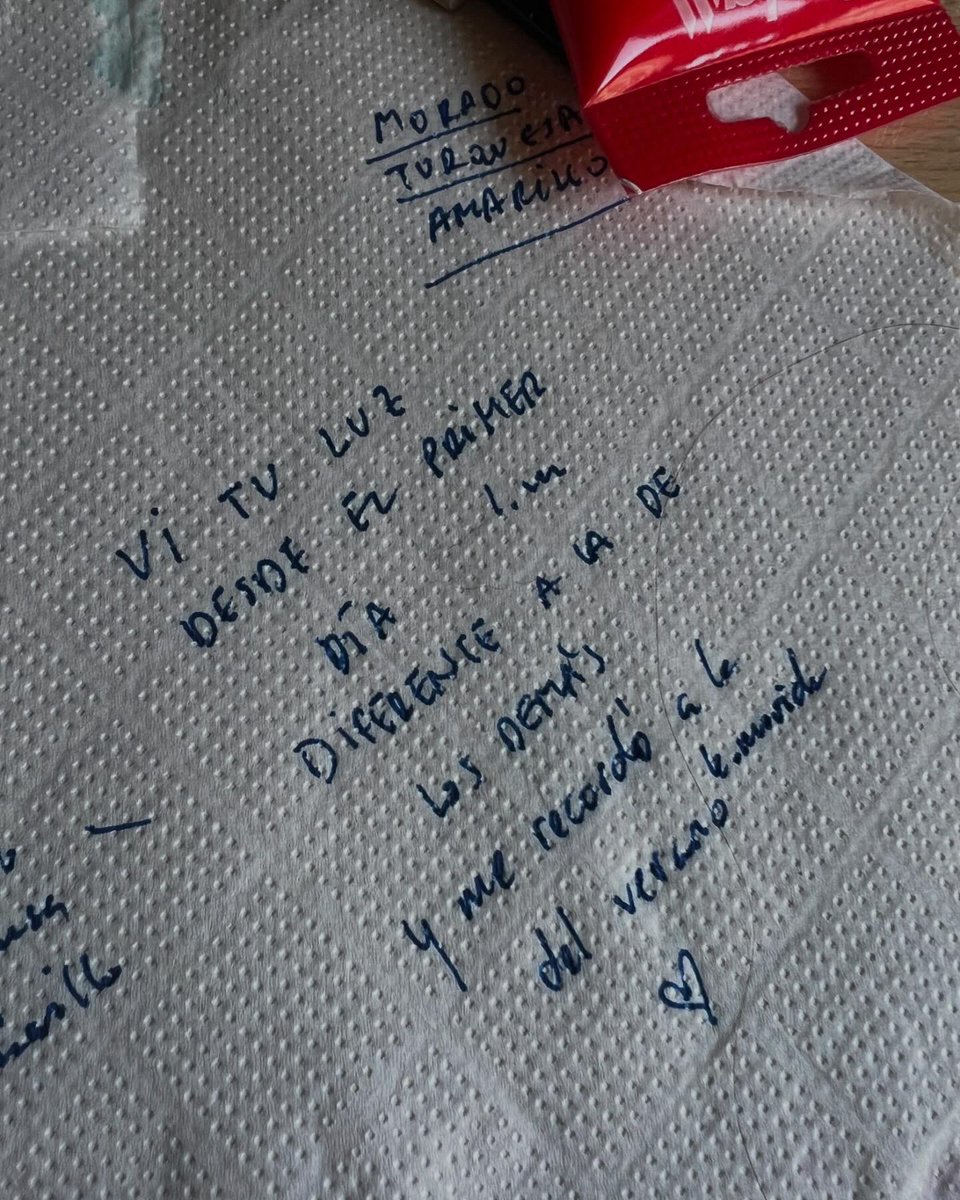 MORADO
TURQUESA
AMARILLO
VI TU LUZ
DESDE EL PRIMER
DÍA
DIFERENCE A LA DE
LOS DEMÁS
y me recordó a la
del verano